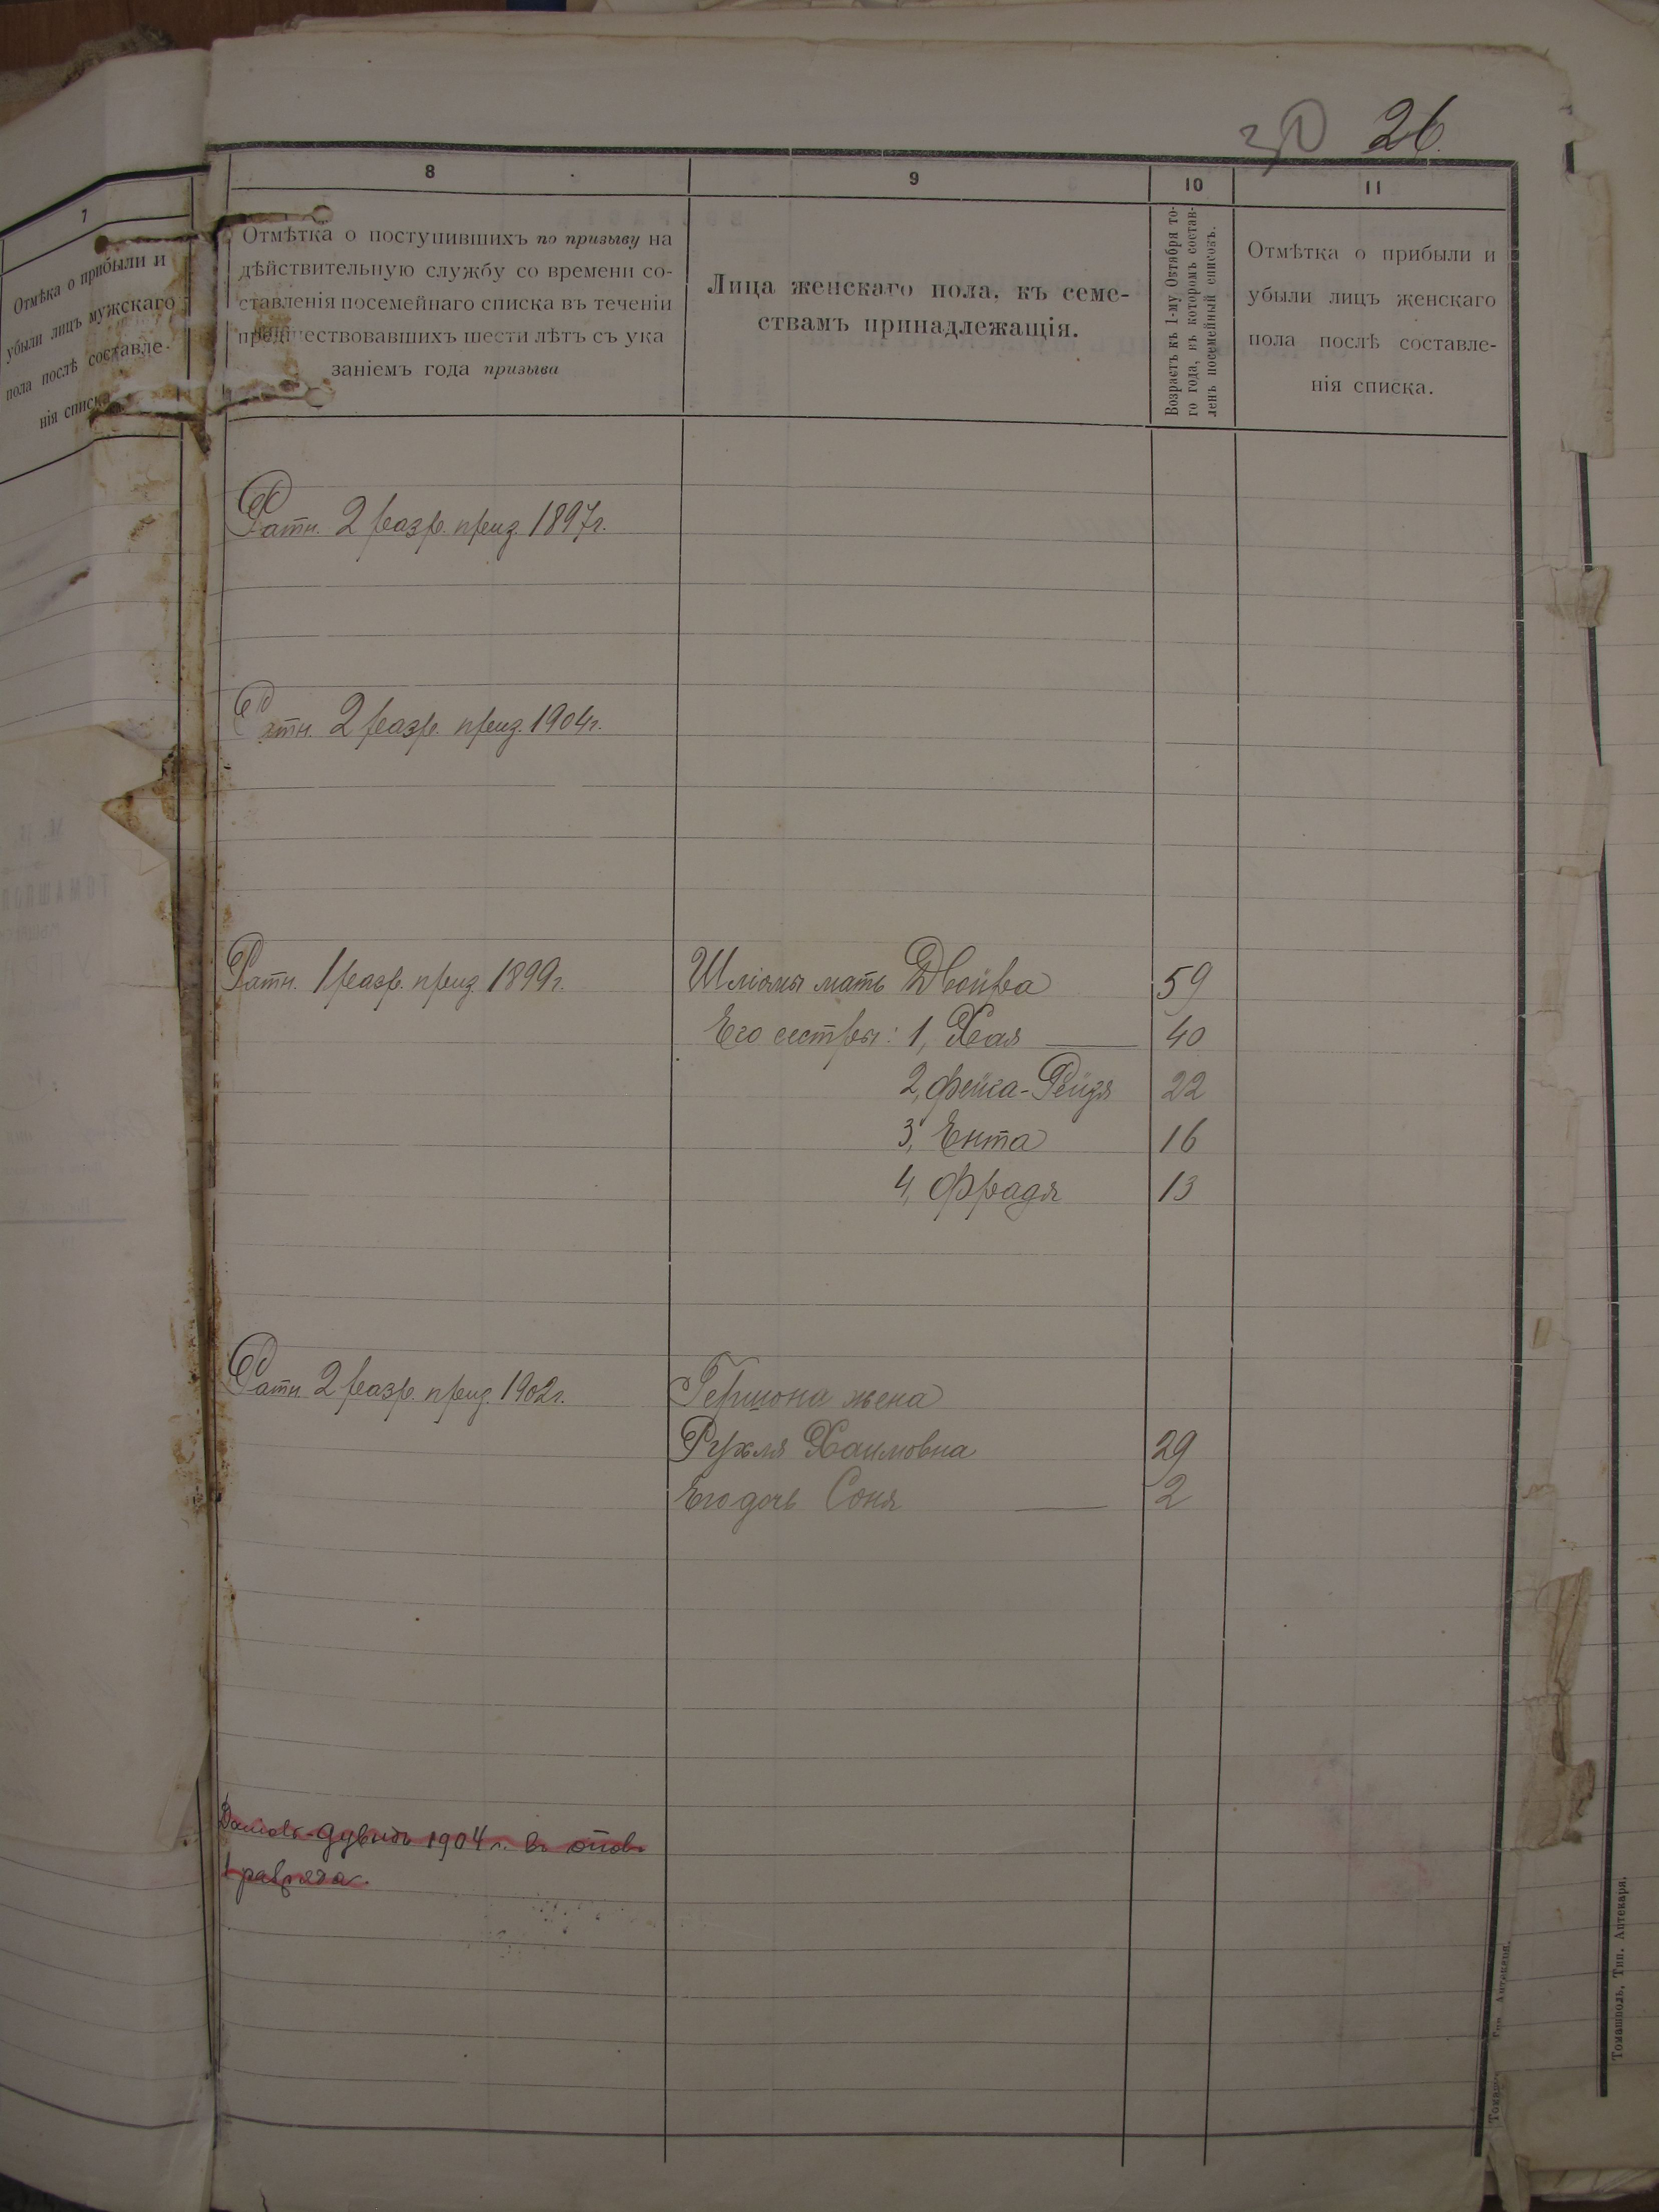 26.
7
Отмѣка о прибыли и
убыли лицъ мужскаго
пола послѣ составле-
нія списка
8
Отмѣтка о поступившихъ по призыву на
дѣйствительную службу со времени со-
ставленія посемейнаго списка въ теченіи
предшествовавшихъ шести лѣтъ съ ука
заніемъ года призыва
9
Лица женскаго пола, къ семе-
ствамъ принадлежащія.
10
Возрастъ къ 1-му Октября то-
го года, въ которомъ состав-
ленъ посемейный списокъ.
11
Отмѣтка о прибыли и
убыли лицъ женскаго
пола послѣ составле-
нія списка.
Ратн. 2 разр. приз. 1897г.
Ратн. 2 разр. приз. 1904г.
Ратн. 1 разр. приз. 1899г. Шліомы мать Двойра 59
Его сестры: 1, Хая 40
2, Фейга-Рейзя 22
3, Ента 16
4, Фрадя 13
Ратн. 2 разр. приз. 1902г. Гершона жена
Рухля Хаимовна 29
Его дочь Соня 2
Дувидъ 1904 г. въ
1 разряда.
Томашполь, Тип. Аптекаря.